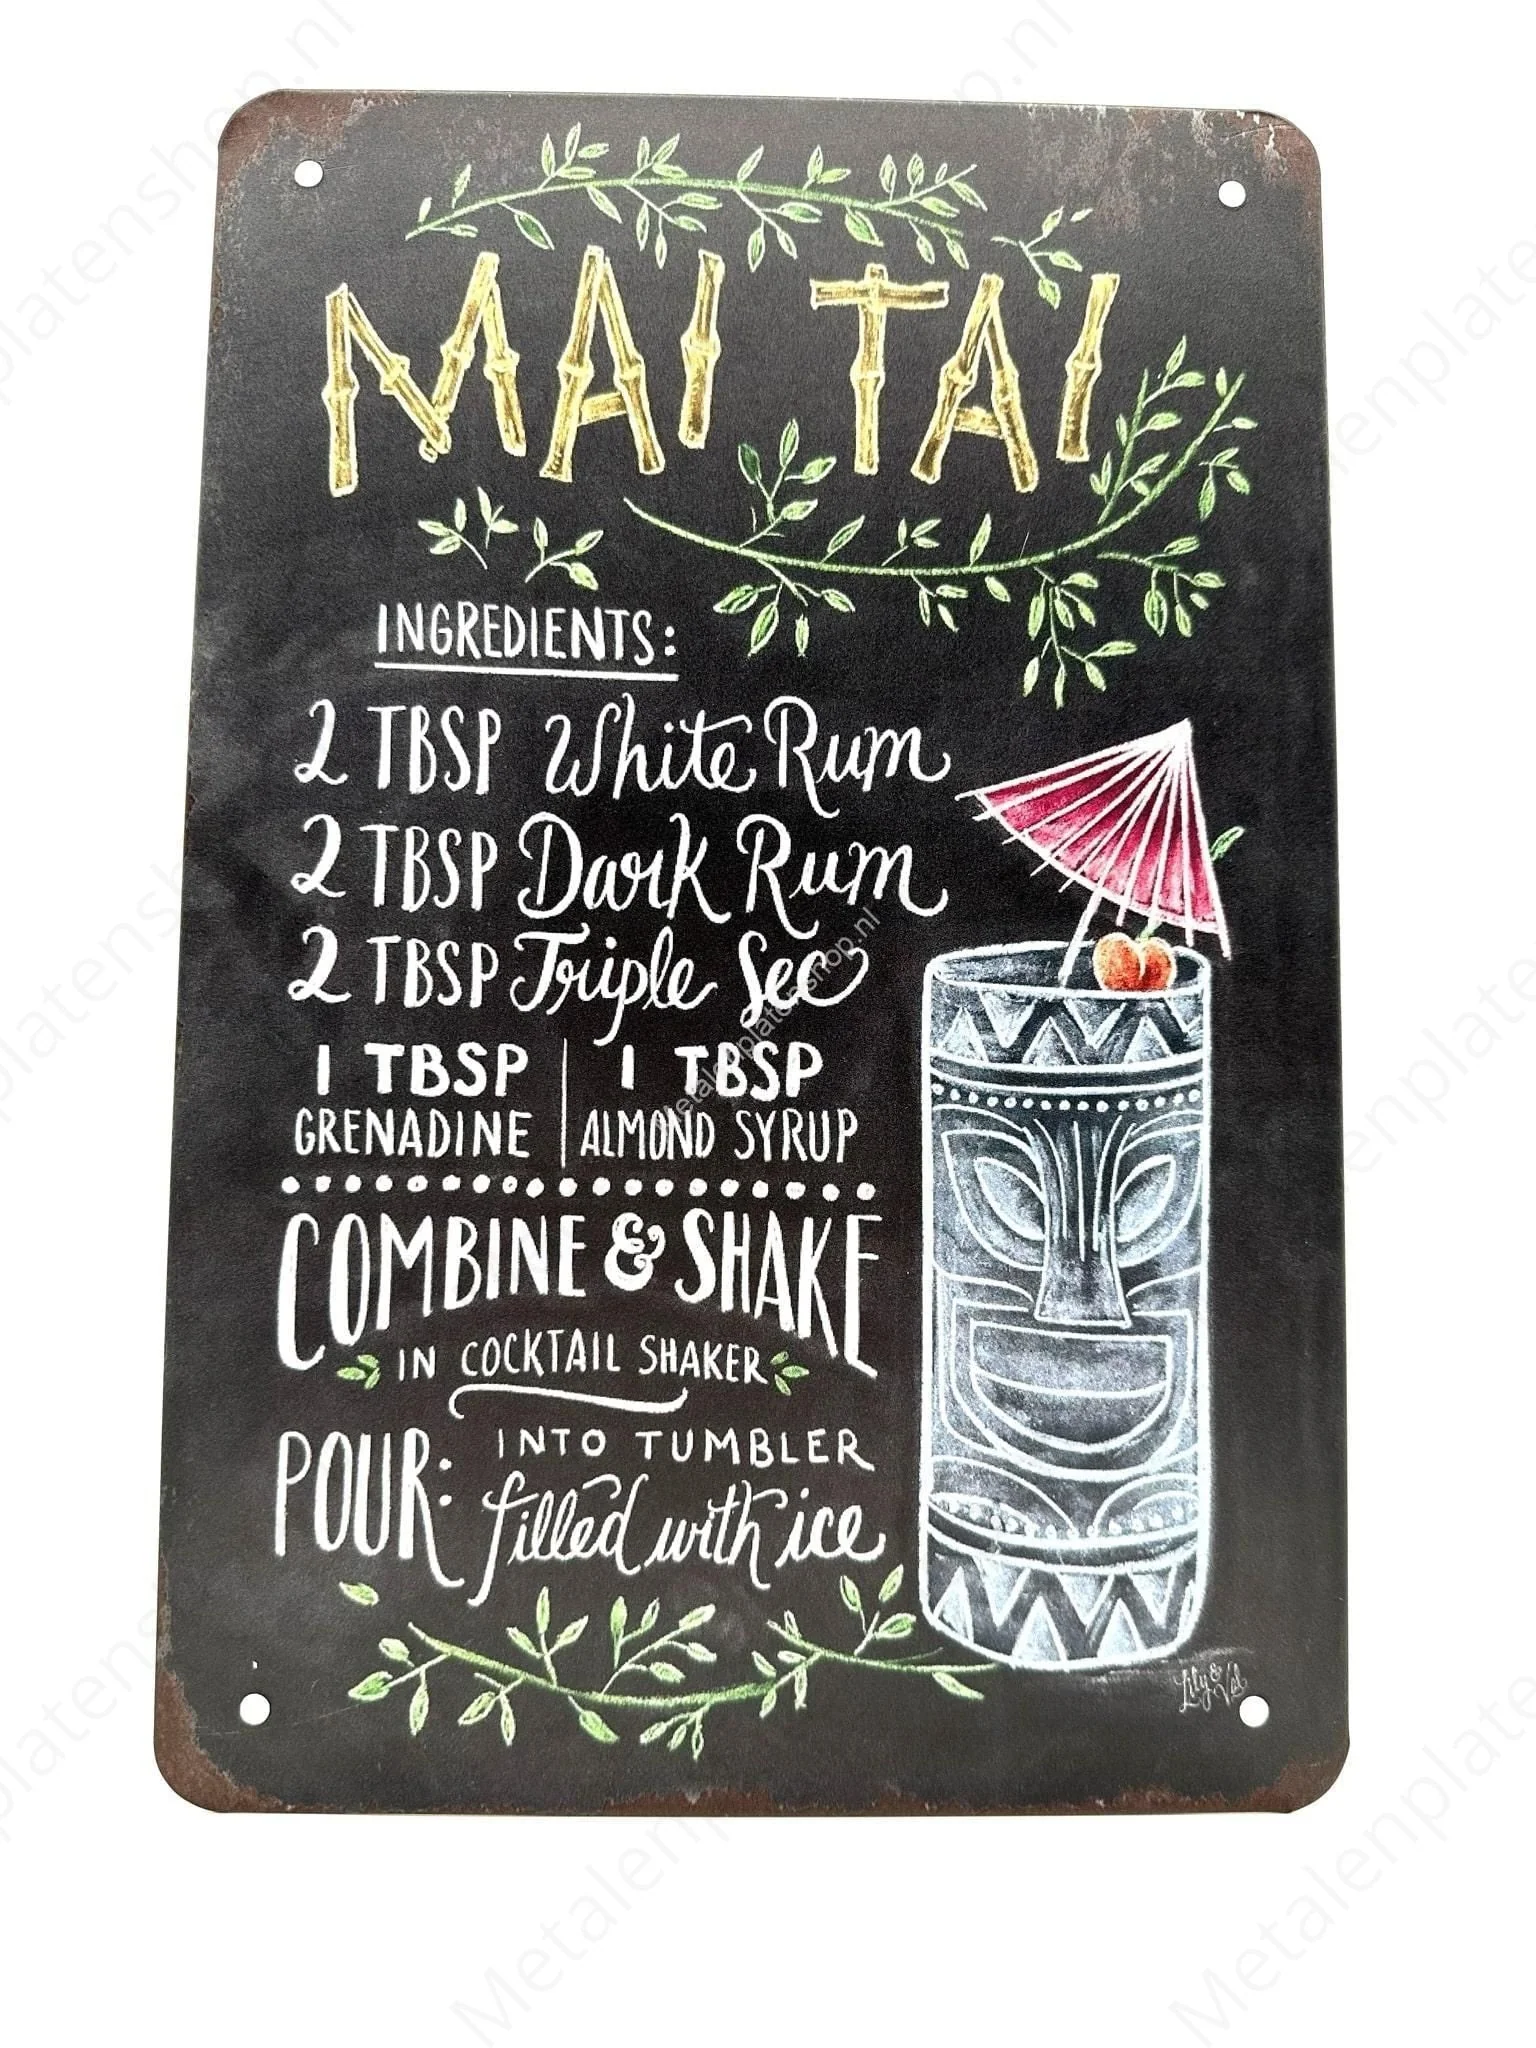 MAI TAI
INGREDIENTS:
2 TBSP White Rum
2 TBSP Dark Rum
2 TBSP Triple Sec
1 TBSP | 1 TBSP
GRENADINE | ALMOND SYRUP
COMBINE & SHAKE
IN COCKTAIL SHAKER
POUR: INTO TUMBLER
filled with ice
Lily & Val
Metalenplatenshop.nl